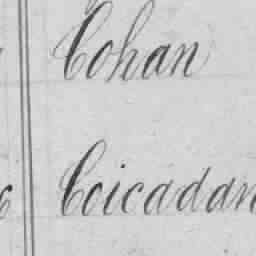 Cohan
Coicadan